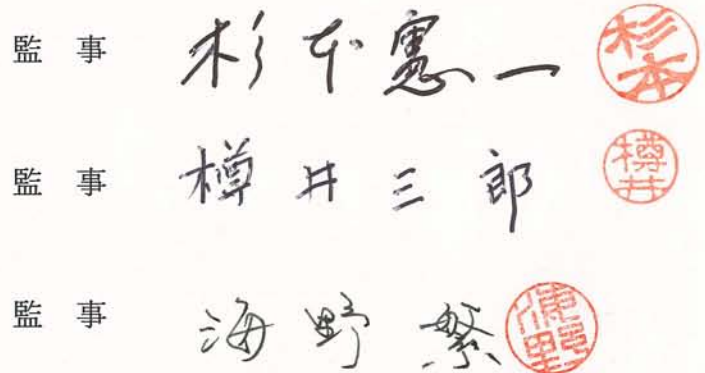 監 事 杉本憲一 杉本
監 事 樽井三郎 樽井
監 事 海野繁